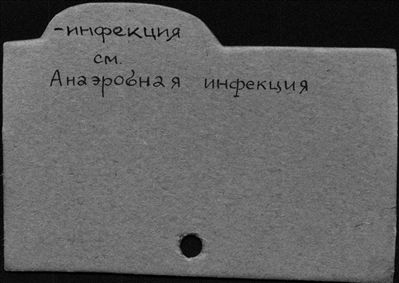 -инфекция
см.
Анаэробная инфекция